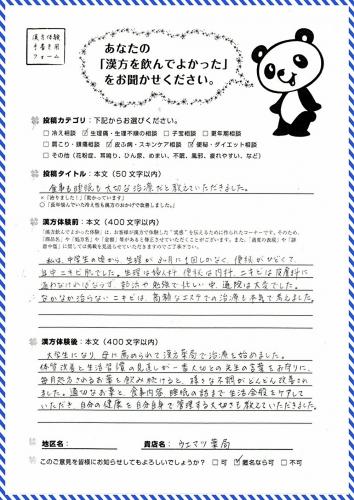 漢方体験
手書き用
フォーム
あなたの
「漢方を飲んでよかった」
をお聞かせください。
投稿カテゴリ：下記からお選びください。
□冷え相談 ☑生理痛・生理不順の相談 □子宝相談 □更年期相談
□肩こり・頭痛相談 ☑皮ふ病・スキンケア相談 ☑便秘・ダイエット相談
□その他（花粉症、耳鳴り、ひん尿、めまい、不眠、風邪、疲れやすい、など）
投稿タイトル：本文（50文字以内）
食事も睡眠も大切な治療だと教えていただきました。
×「治りました！」「助かっています」
○「長年悩んでいた冷え性も漢方のおかげで改善しました。」
漢方体験前：本文（400文字以内）
「漢方飲んでよかった体験」は、お客様が漢方で体験した"実感"を伝えるために作られたコーナーです。そのため、
「商品名」や「処方名」や「金額」等があると修正させていただくことがございます。また「過度の表現」や「誹
謗中傷」に関しては掲載を見送らせていただきますのでご了承下さい。
私は、中学生の頃から、生理が3か月に1回しかなく、便秘がひどくて、
年中ニキビ肌でした。生理は婦人科、便秘は内科、ニキビは皮膚科に
通わなければならず、部活や勉強で忙しい中、通院は大変でした。
なかなか治らないニキビは、高額なエステでの治療も本気で考えました。
漢方体験後：本文（400文字以内）
大学生になり、母に薦められて漢方薬局で治療を始めました。
体質改善と生活習慣の見直しが一番大切との先生の言葉をお守りに、
毎月処方されるお薬を飲み続けると、様々な不調がどんどん改善されま
した。適切なお薬と、食事内容、睡眠の話まで生活全般をケアして
いただき、自分の健康を自分自身で管理する大切さも教えていただきました。
地区名： 貴店名：ウエマツ薬局
このご意見を皆様にお知らせしてもよろしいでしょうか？ □可 ☑匿名なら可 □不可